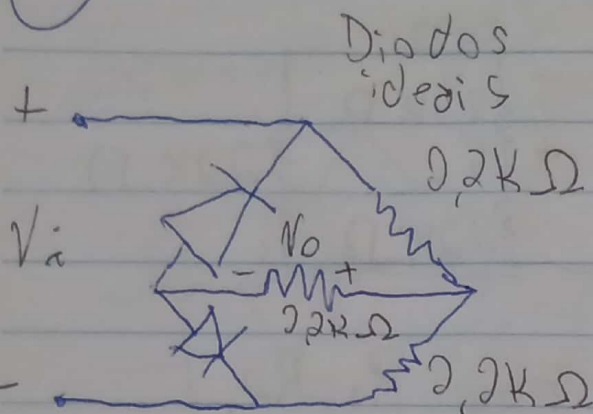 Diodos
ideais
+
2,2KΩ
Vi
- Vo +
2,2KΩ
-
2,2KΩ